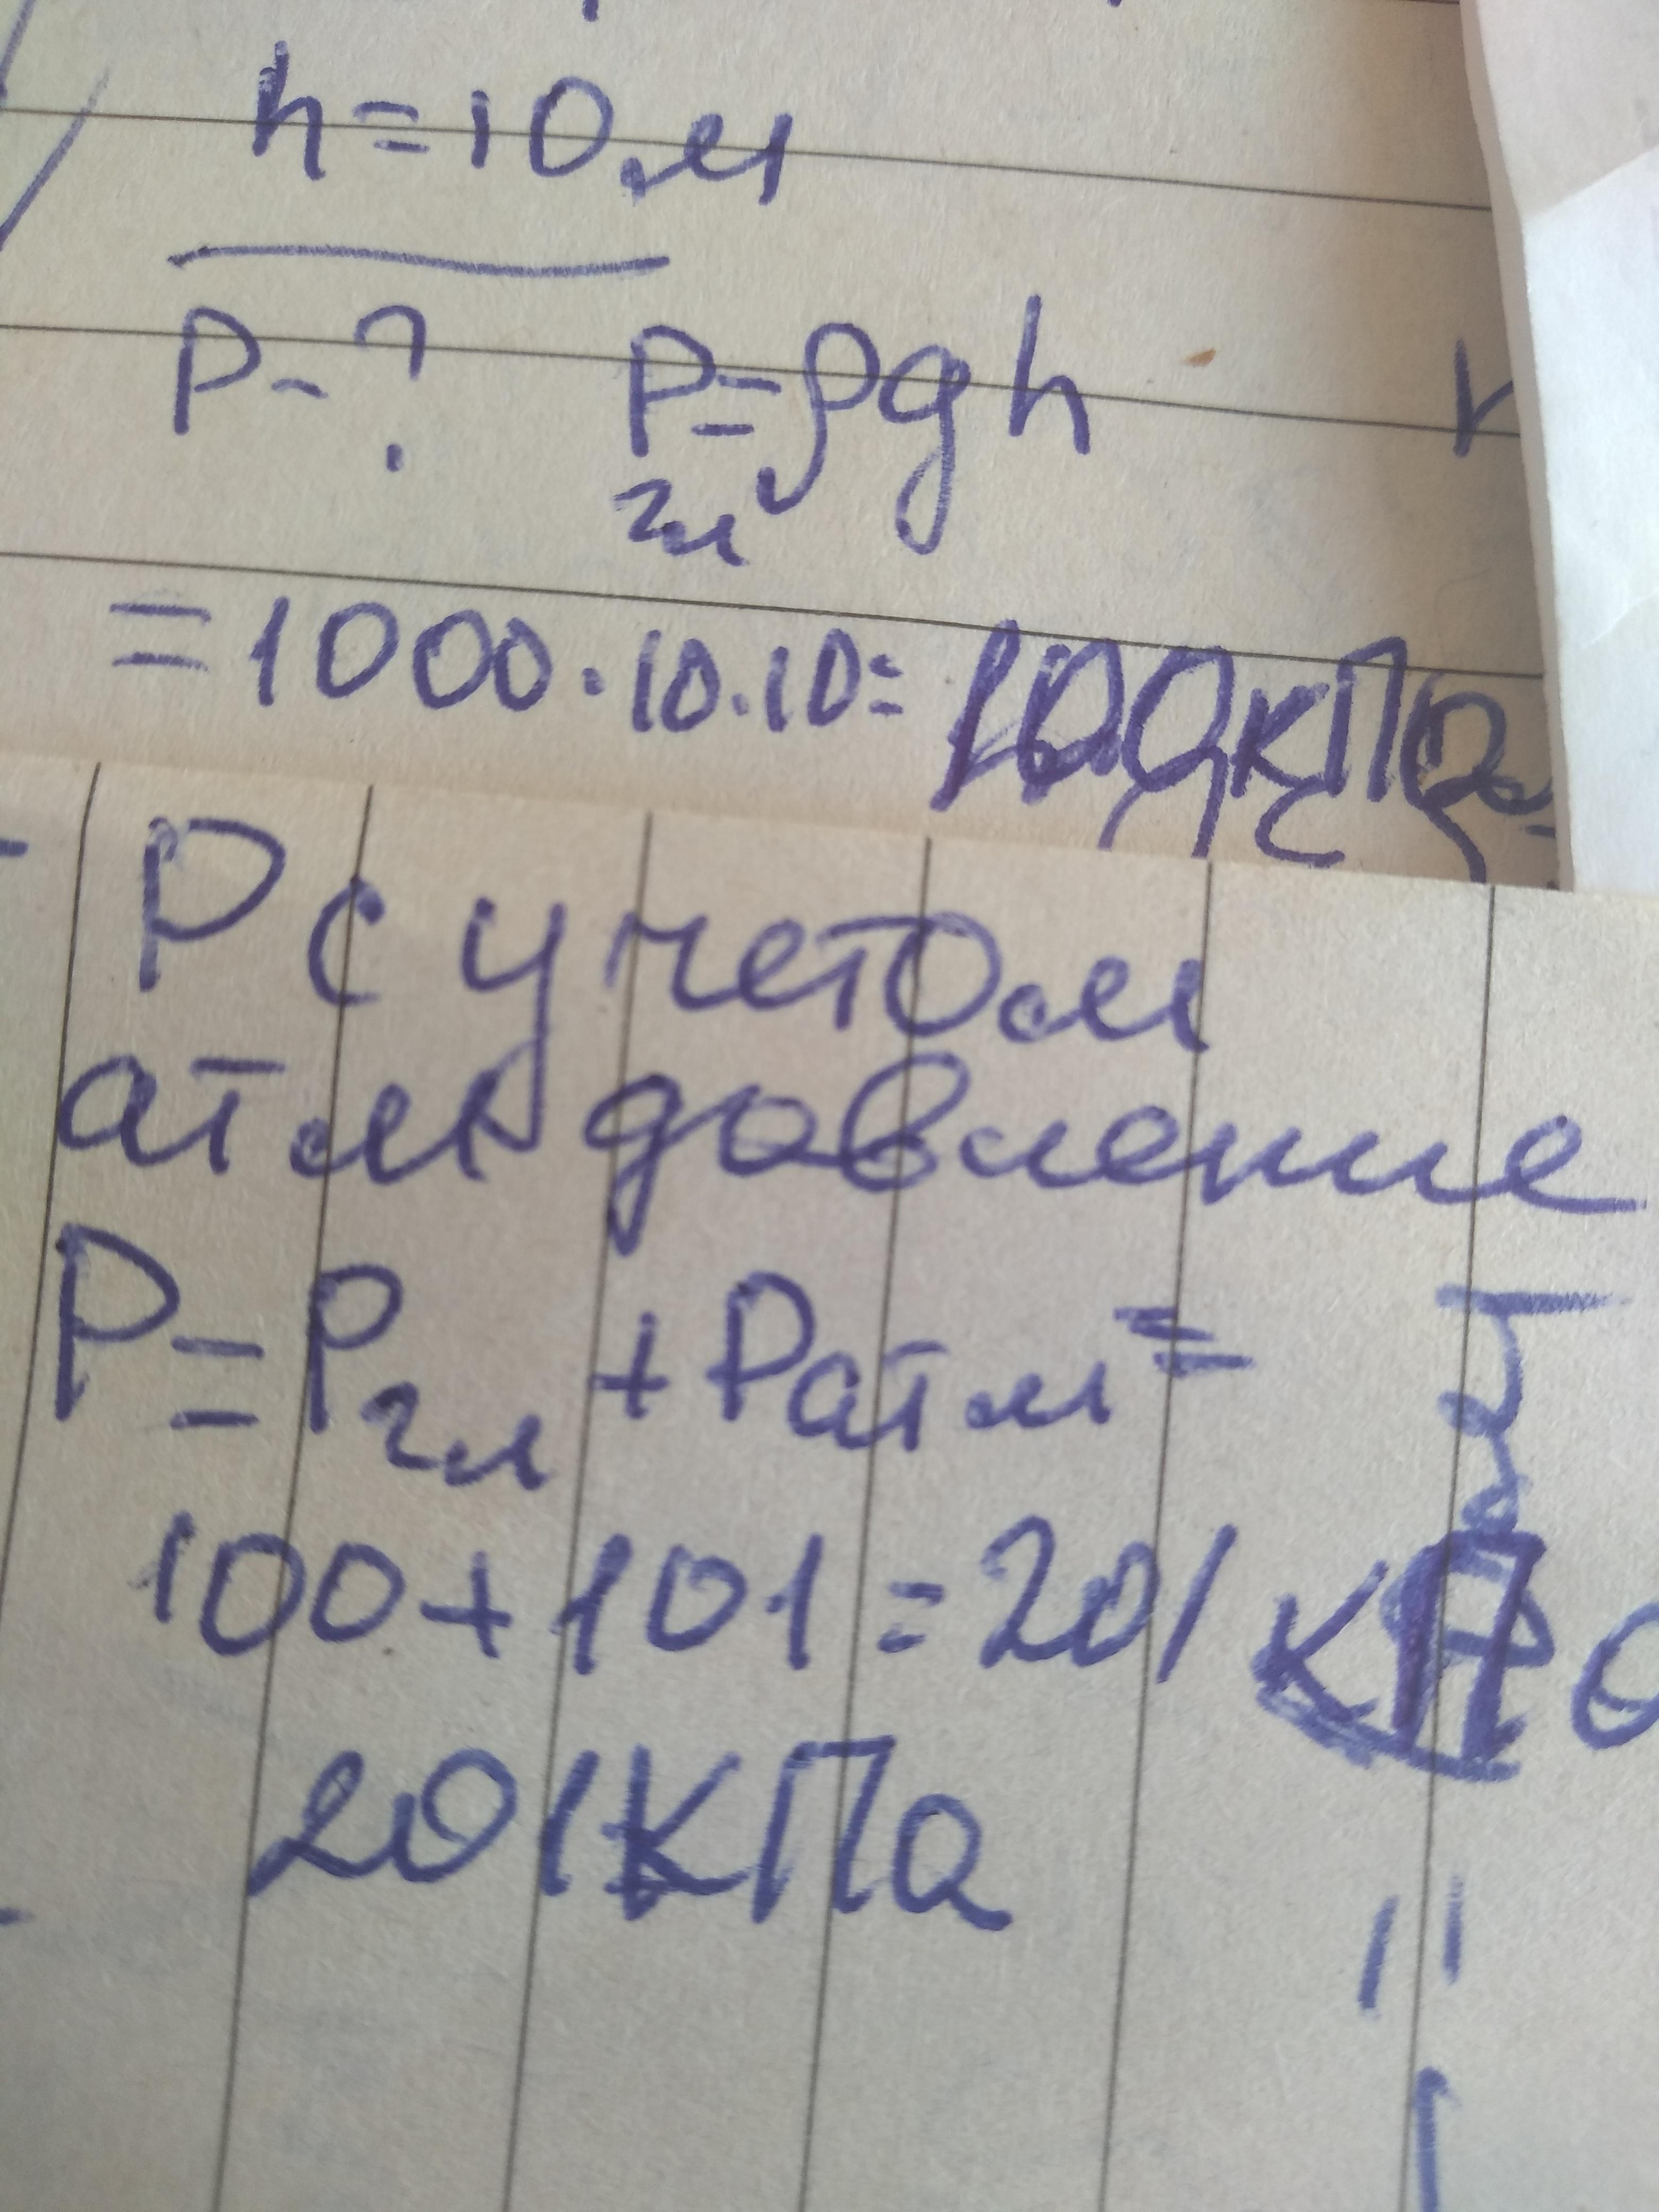 h=10м
P-? Pгл=ρgh
=1000·10·10=100кПа
P с учетом
атм давление
P=Pгл+Pатм=
100+101=201 кПа
201кПа